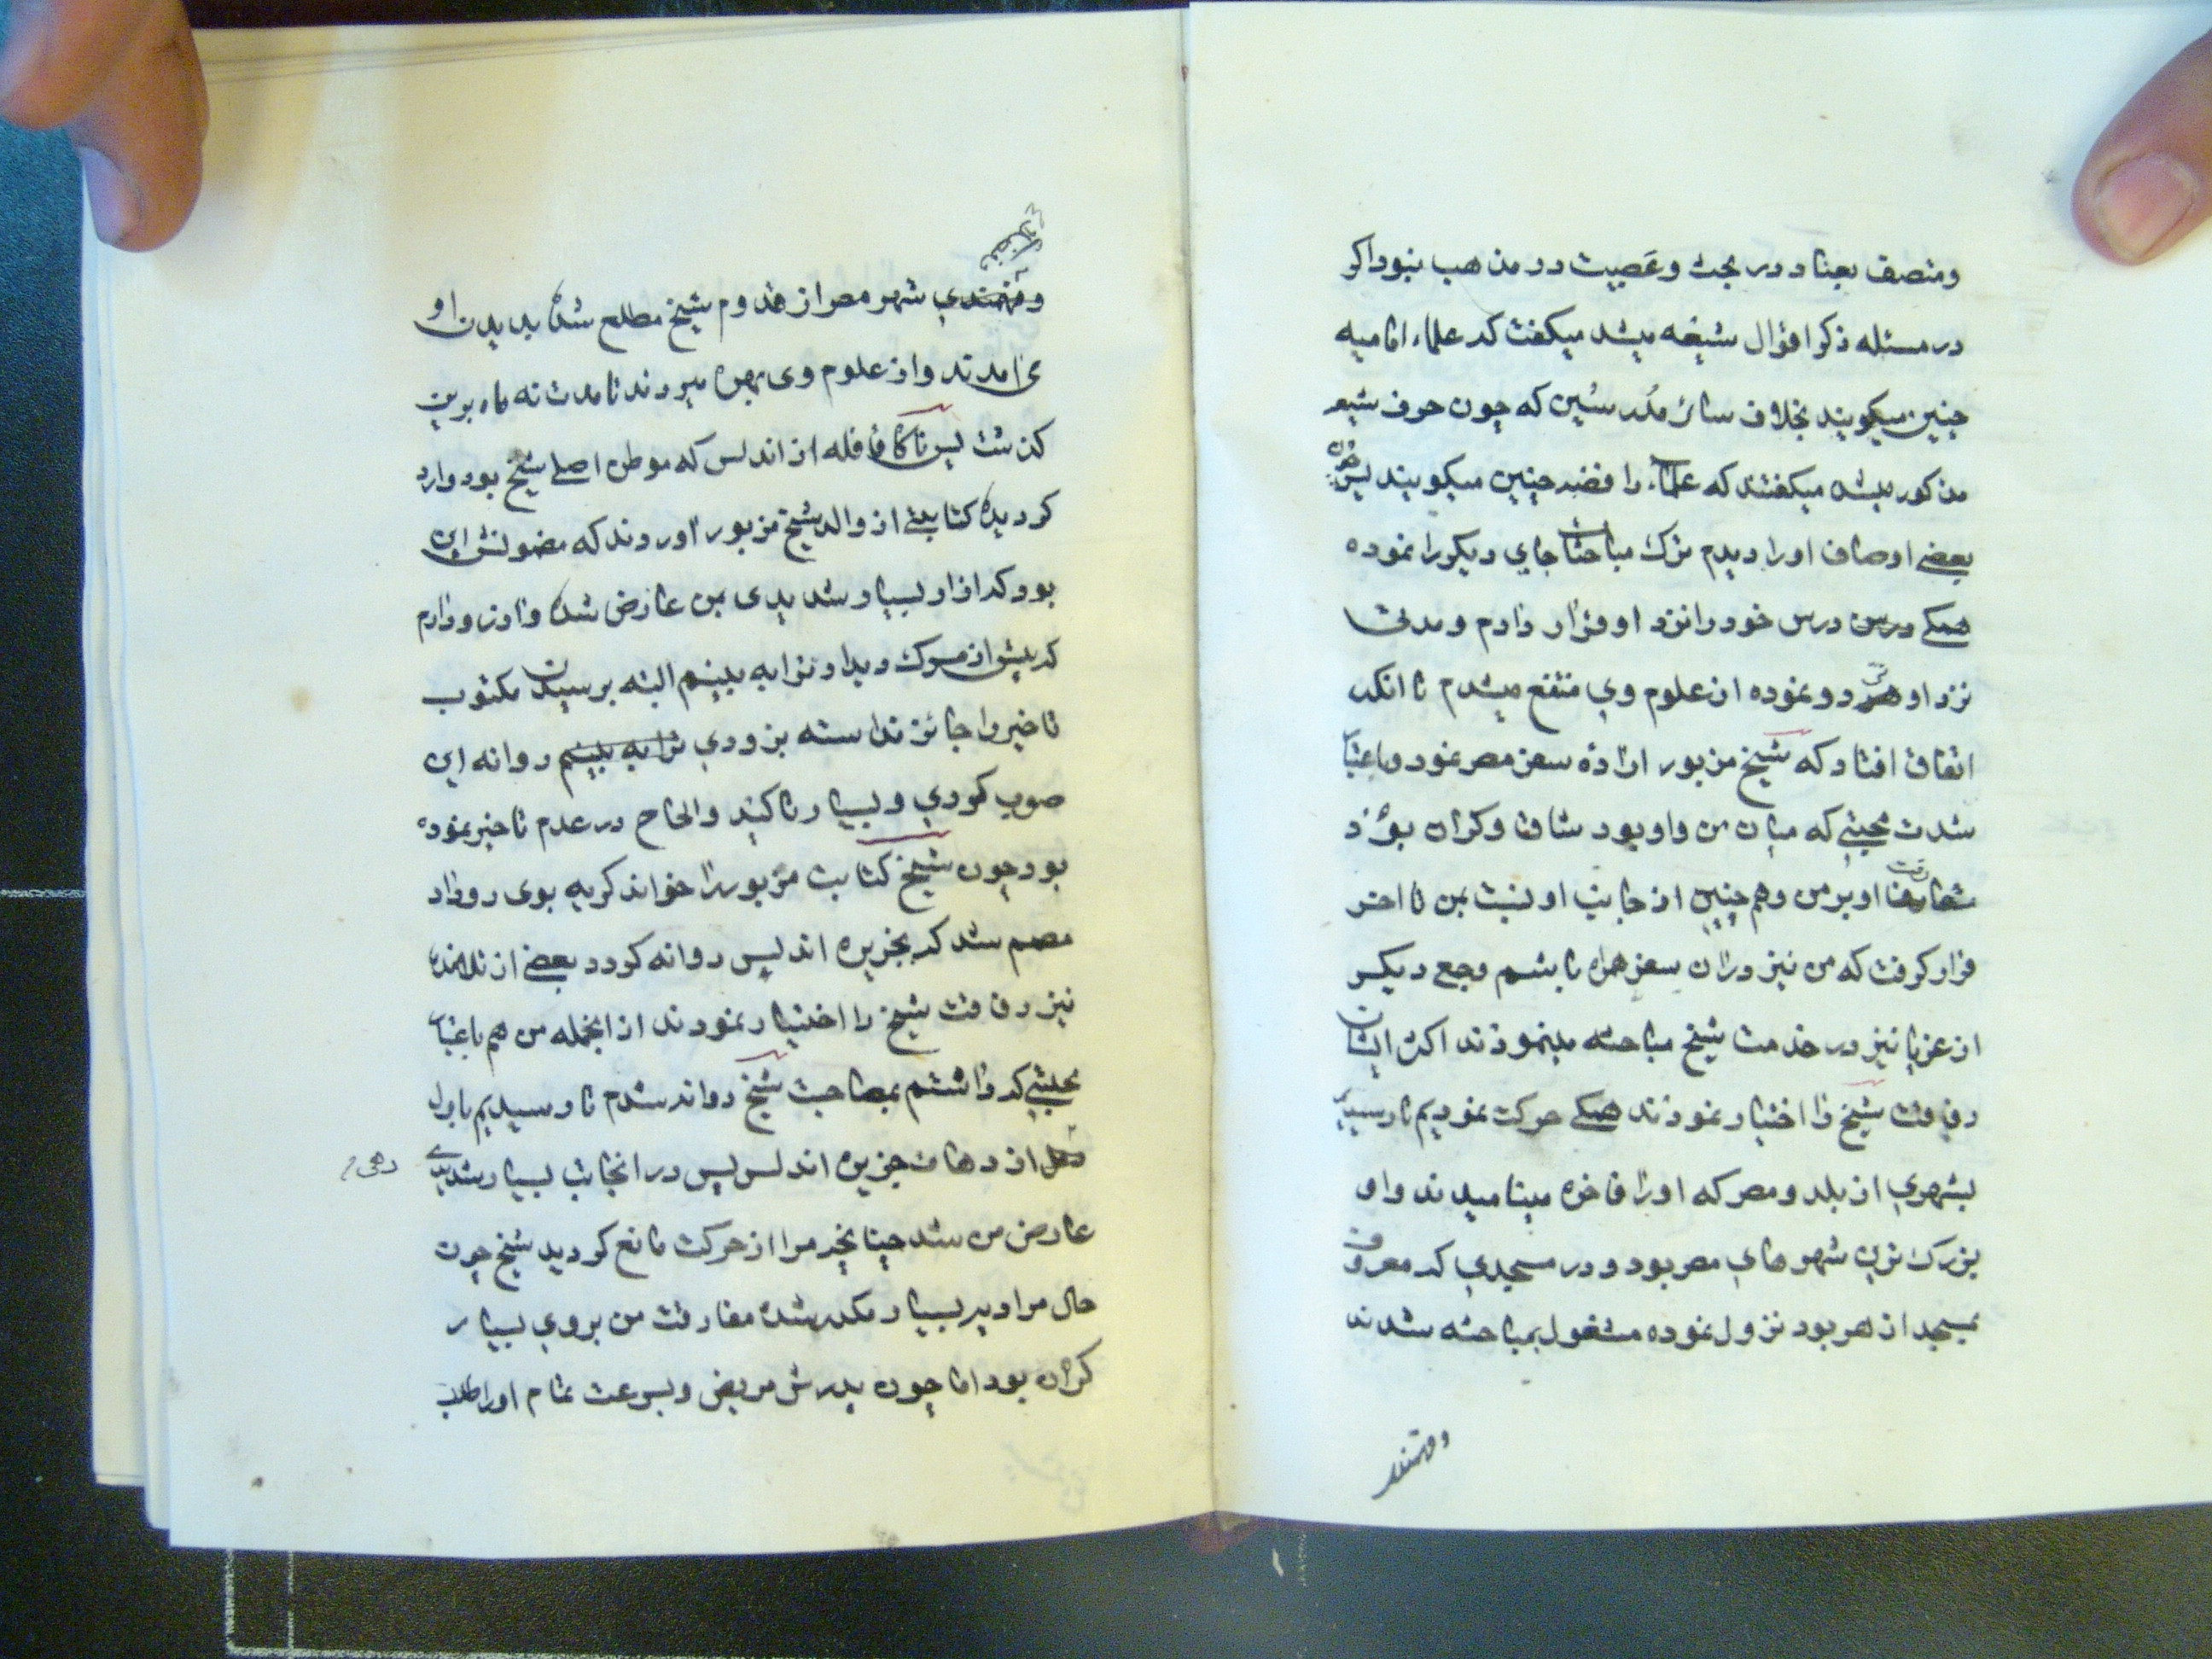 ومتصف بعناد در بحث وعصبیت در مذهب نبود اکر
در مسئله ذکر اقوال شیعه میشد میکفت که علماء امامیه
چنین میکویند بخلاف سائر مدرسین که چون حرف شیعه
مذکور میشد میکفتند که علماء رافضه چنین میکویند پس چون
بعضی اوصاف اورا دیدم ترک مباحثات جای دیکر را نموده
همکی درس خود را نزد او قرار دادم ومدتی
نزد او تردد نموده از علوم وی منتفع میشدم تا انکه
اتفاق افتاد که شیخ مزبور اراده سفر مصر نمود وباعتبار
شدت محبتی که میان من واو بود شاق وکران بود
مفارقت او بر من وهم چنین از جانب او نسبت بمن تا اخر
قرار کرفت که من نیز در ان سفر همراه باشم وجمع دیکر
از عزبا نیز در خدمت شیخ مباحثه مینمودند اکثر ایشان
رفاقت شیخ را اختیار نمودند همکی حرکت نمودیم تا رسیدیم
بشهری از بلد ومصر که اورا فاخره مینامیدند واو
بزرک ترین شهرهای مصر بود ودر مسجدی که معروف
بمسجد ازهر بود نزول نموده مشغول بمباحثه شدند
شهر مصر از قدوم شیخ مطلع شده بدیدن او
می امدند واز علوم وی بهره میبردند تا مدت نه ماه برین
کذشت پس ناکاه قافله از اندلس که موطن اصلی شیخ بود وارد
کردیده کتابتی از والد شیخ مزبور اوردند که مضمونش این
بود که ازار بسیار شدیدی بمن عارض شده وارزو دارم
که پیش از مرک دیدار ترا به بینم البته برسیدن مکتوب
تاخیر را جائز نداسته بزودی ترا به بینم روانه این
صوب کردی وبسیار تاکید والحاح در عدم تاخیر نموده
بود چون شیخ کتابت مزبور را خواند کریه بوی رو داد
مصمم شد که بجزیره اندلیس روانه کردد بعضی از تلامذه
نیز رفاقت شیخ را اختیار نمودند از انجمله من هم باعتبار
محبتی که داشتم بمصاحبت شیخ روانه شدم تا رسیدیم باول
از دهات جزیره اندلس پس در انجا تب بسیار شدیدی
دهی
عارض من شد چنانچه مرا از حرکت مانع کردید شیخ چون
حال مرا دید بسیار مکدر شده مفارقت من بروی بسیار
کران بود اما چون پدرش مریض وبسرعت تمام اورا طلب